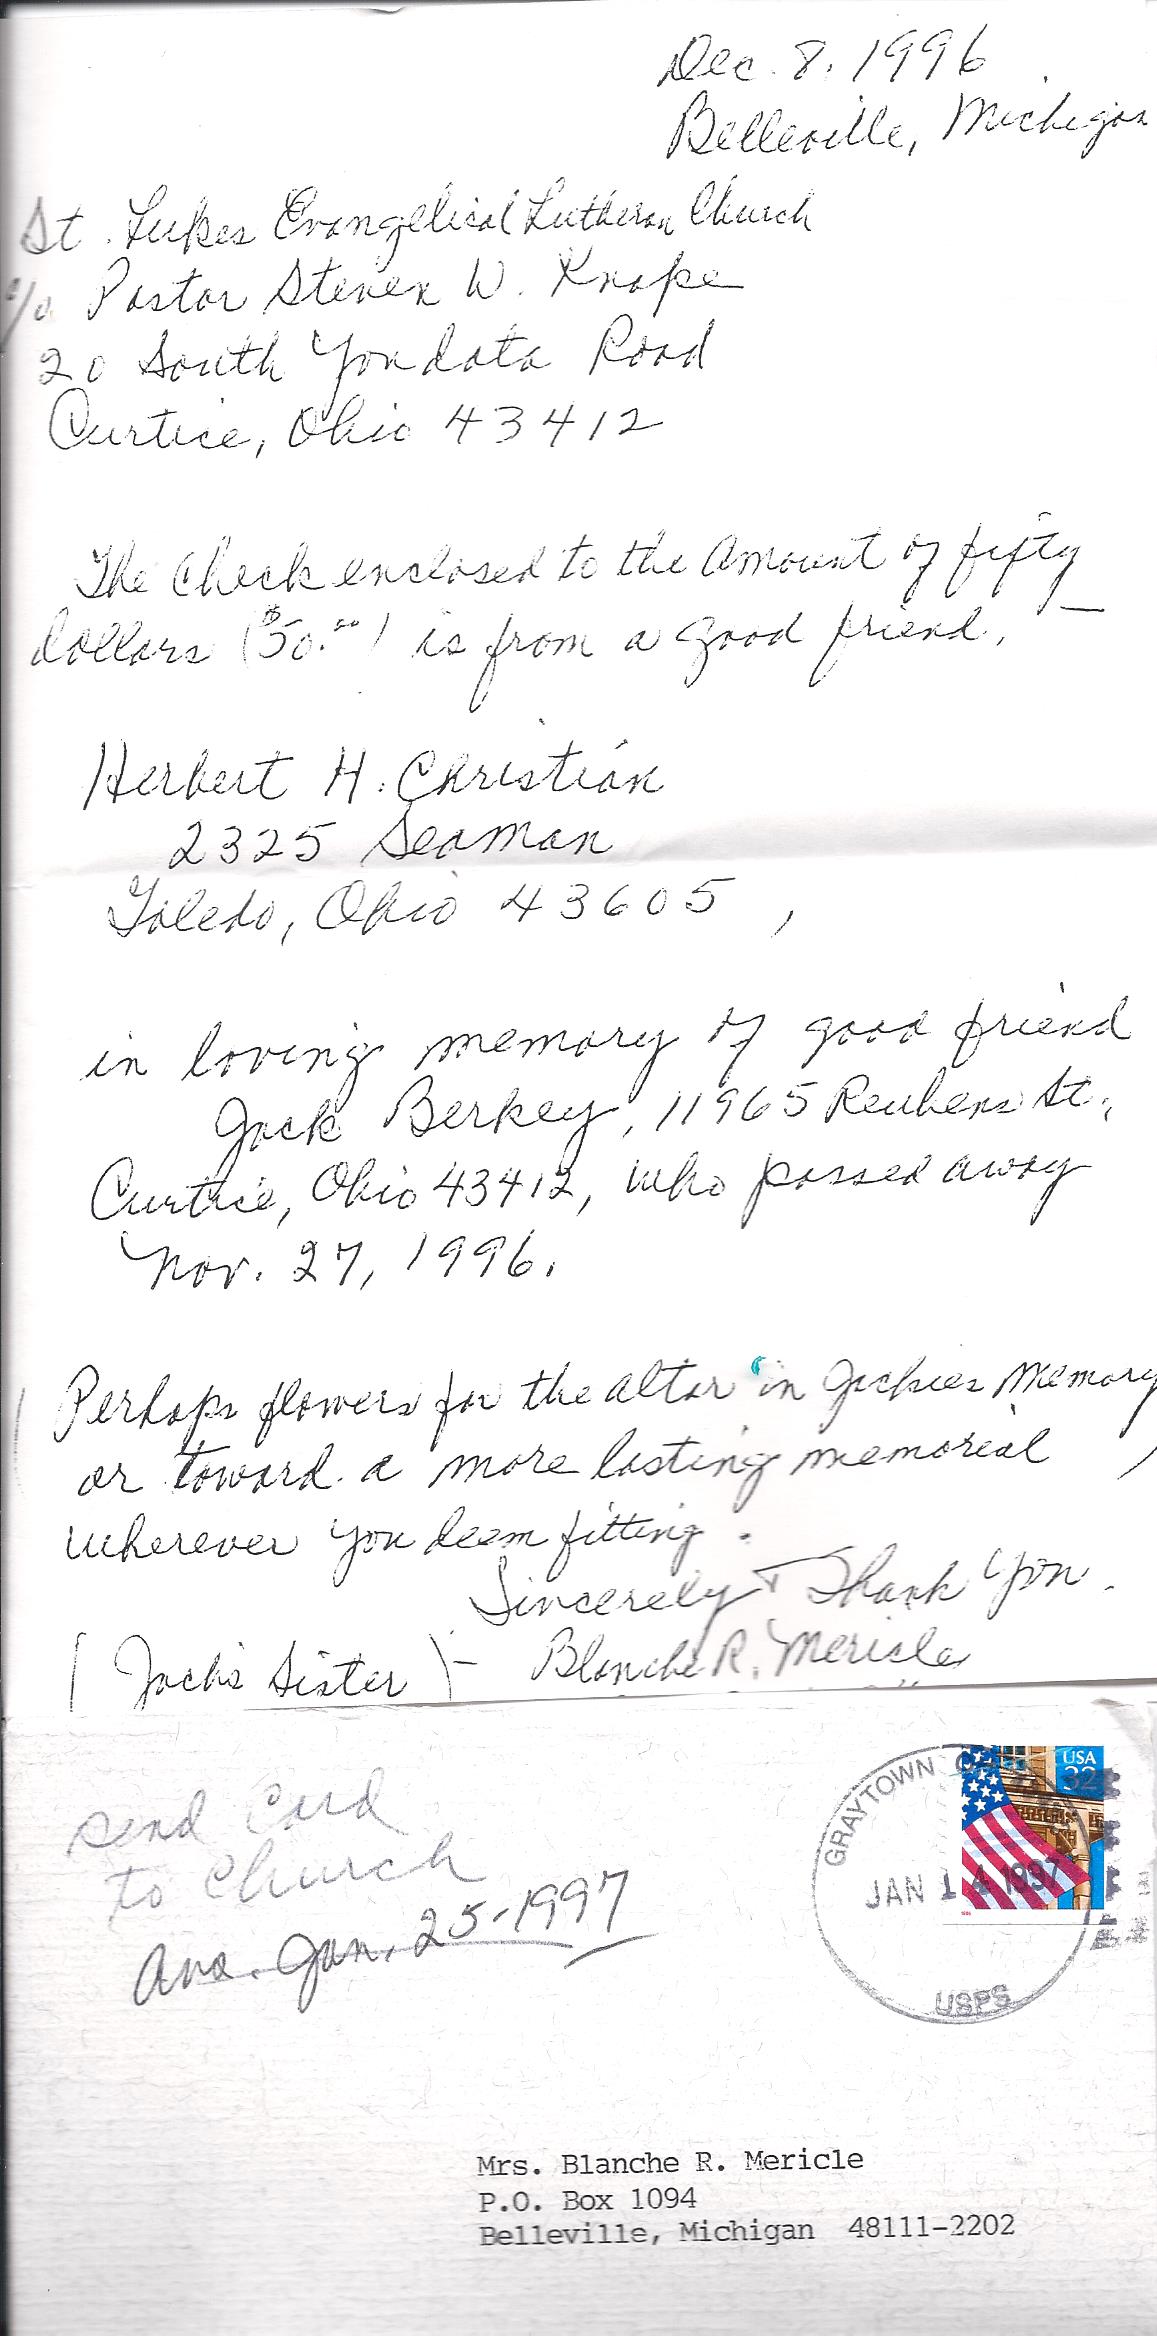 Dec. 8, 1996
Belleville, Michigan
St. Lukes Evangelical Lutheran Church
c/o Pastor Steven W. Knape
20 South Yondota Road
Curtice, Ohio 43412
The Check enclosed to the Amount of fifty
dollars ($50.00) is from a good friend, —
Herbert H. Christian
2325 Seaman
Toledo, Ohio 43605 ,
in loving memory of good friend
Jack Berkey, 11965 Reubens St.,
Curtice, Ohio 43412, who passed away
Nov. 27, 1996.
Perhaps flowers for the altar in Jackies Memory
or toward a more lasting memorial ,
wherever you deem fitting.
Sincerely + Thank You.
(Jack's Sister) - Blanche R. Mericle
send Card
to Church
Ans. Jan. 25-1997
GRAYTOWN
JAN 14 1997
USPS
USA
32
Mrs. Blanche R. Mericle
P.O. Box 1094
Belleville, Michigan 48111-2202